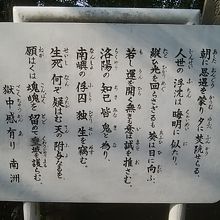 朝に恩遇を蒙り夕に焚阬せらる
人世の浮沈は晦明に似たり
縦ひ光を回らさざるも葵は日に向ふ
若し運を開く無きも意は誠を推さむ
洛陽の知己皆鬼と為り
南嶼の俘囚独り生を竊む
生死何ぞ疑はむ天の附与なるを
願はくは魂魄を留めて皇城を護らむ
獄中感有り 南洲